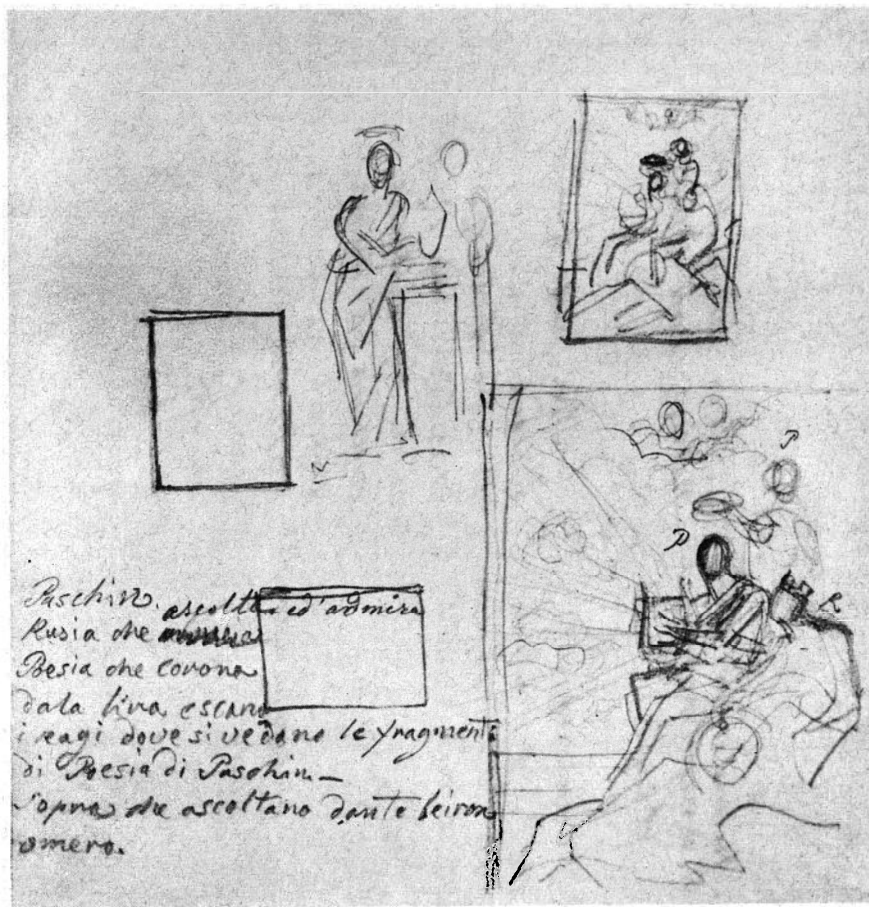 P
P
R
Puschin.
ascolta ed'admira
Rusia che
Poesia che corona
dala lira escano
i ragi dove si vedono le fragmenti
di Poesia di Puschin—
Sopra che ascoltano dante beiron
omero.